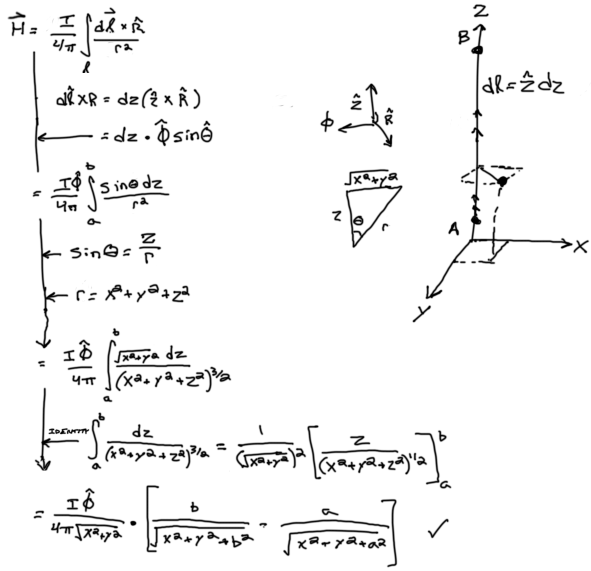 H⃗ = I/4π ∫_ℓ dℓ⃗ × R̂ / r²
dℓ̂ × R = dz(ẑ × R̂)
= dz · Φ̂ sinθ̂
= IΦ̂/4π ∫_a^b sinθ dz / r²
sinθ = z/r
r = x² + y² + z²
= IΦ̂/4π ∫_a^b √x²+y² dz / (x² + y² + z²)^3/2
IDENTITY ∫_a^b dz / (x² + y² + z²)^3/2 = 1/(√x²+y²)² [z / (x² + y² + z²)^1/2]_a^b
= IΦ̂ / 4π√x²+y² · [b / √x² + y² + b² - a / √x² + y² + a²] ✓
ẑ
Φ
R̂
√x²+y²
z
θ
r
Z
B
dℓ = ẑ dz
A
X
Y